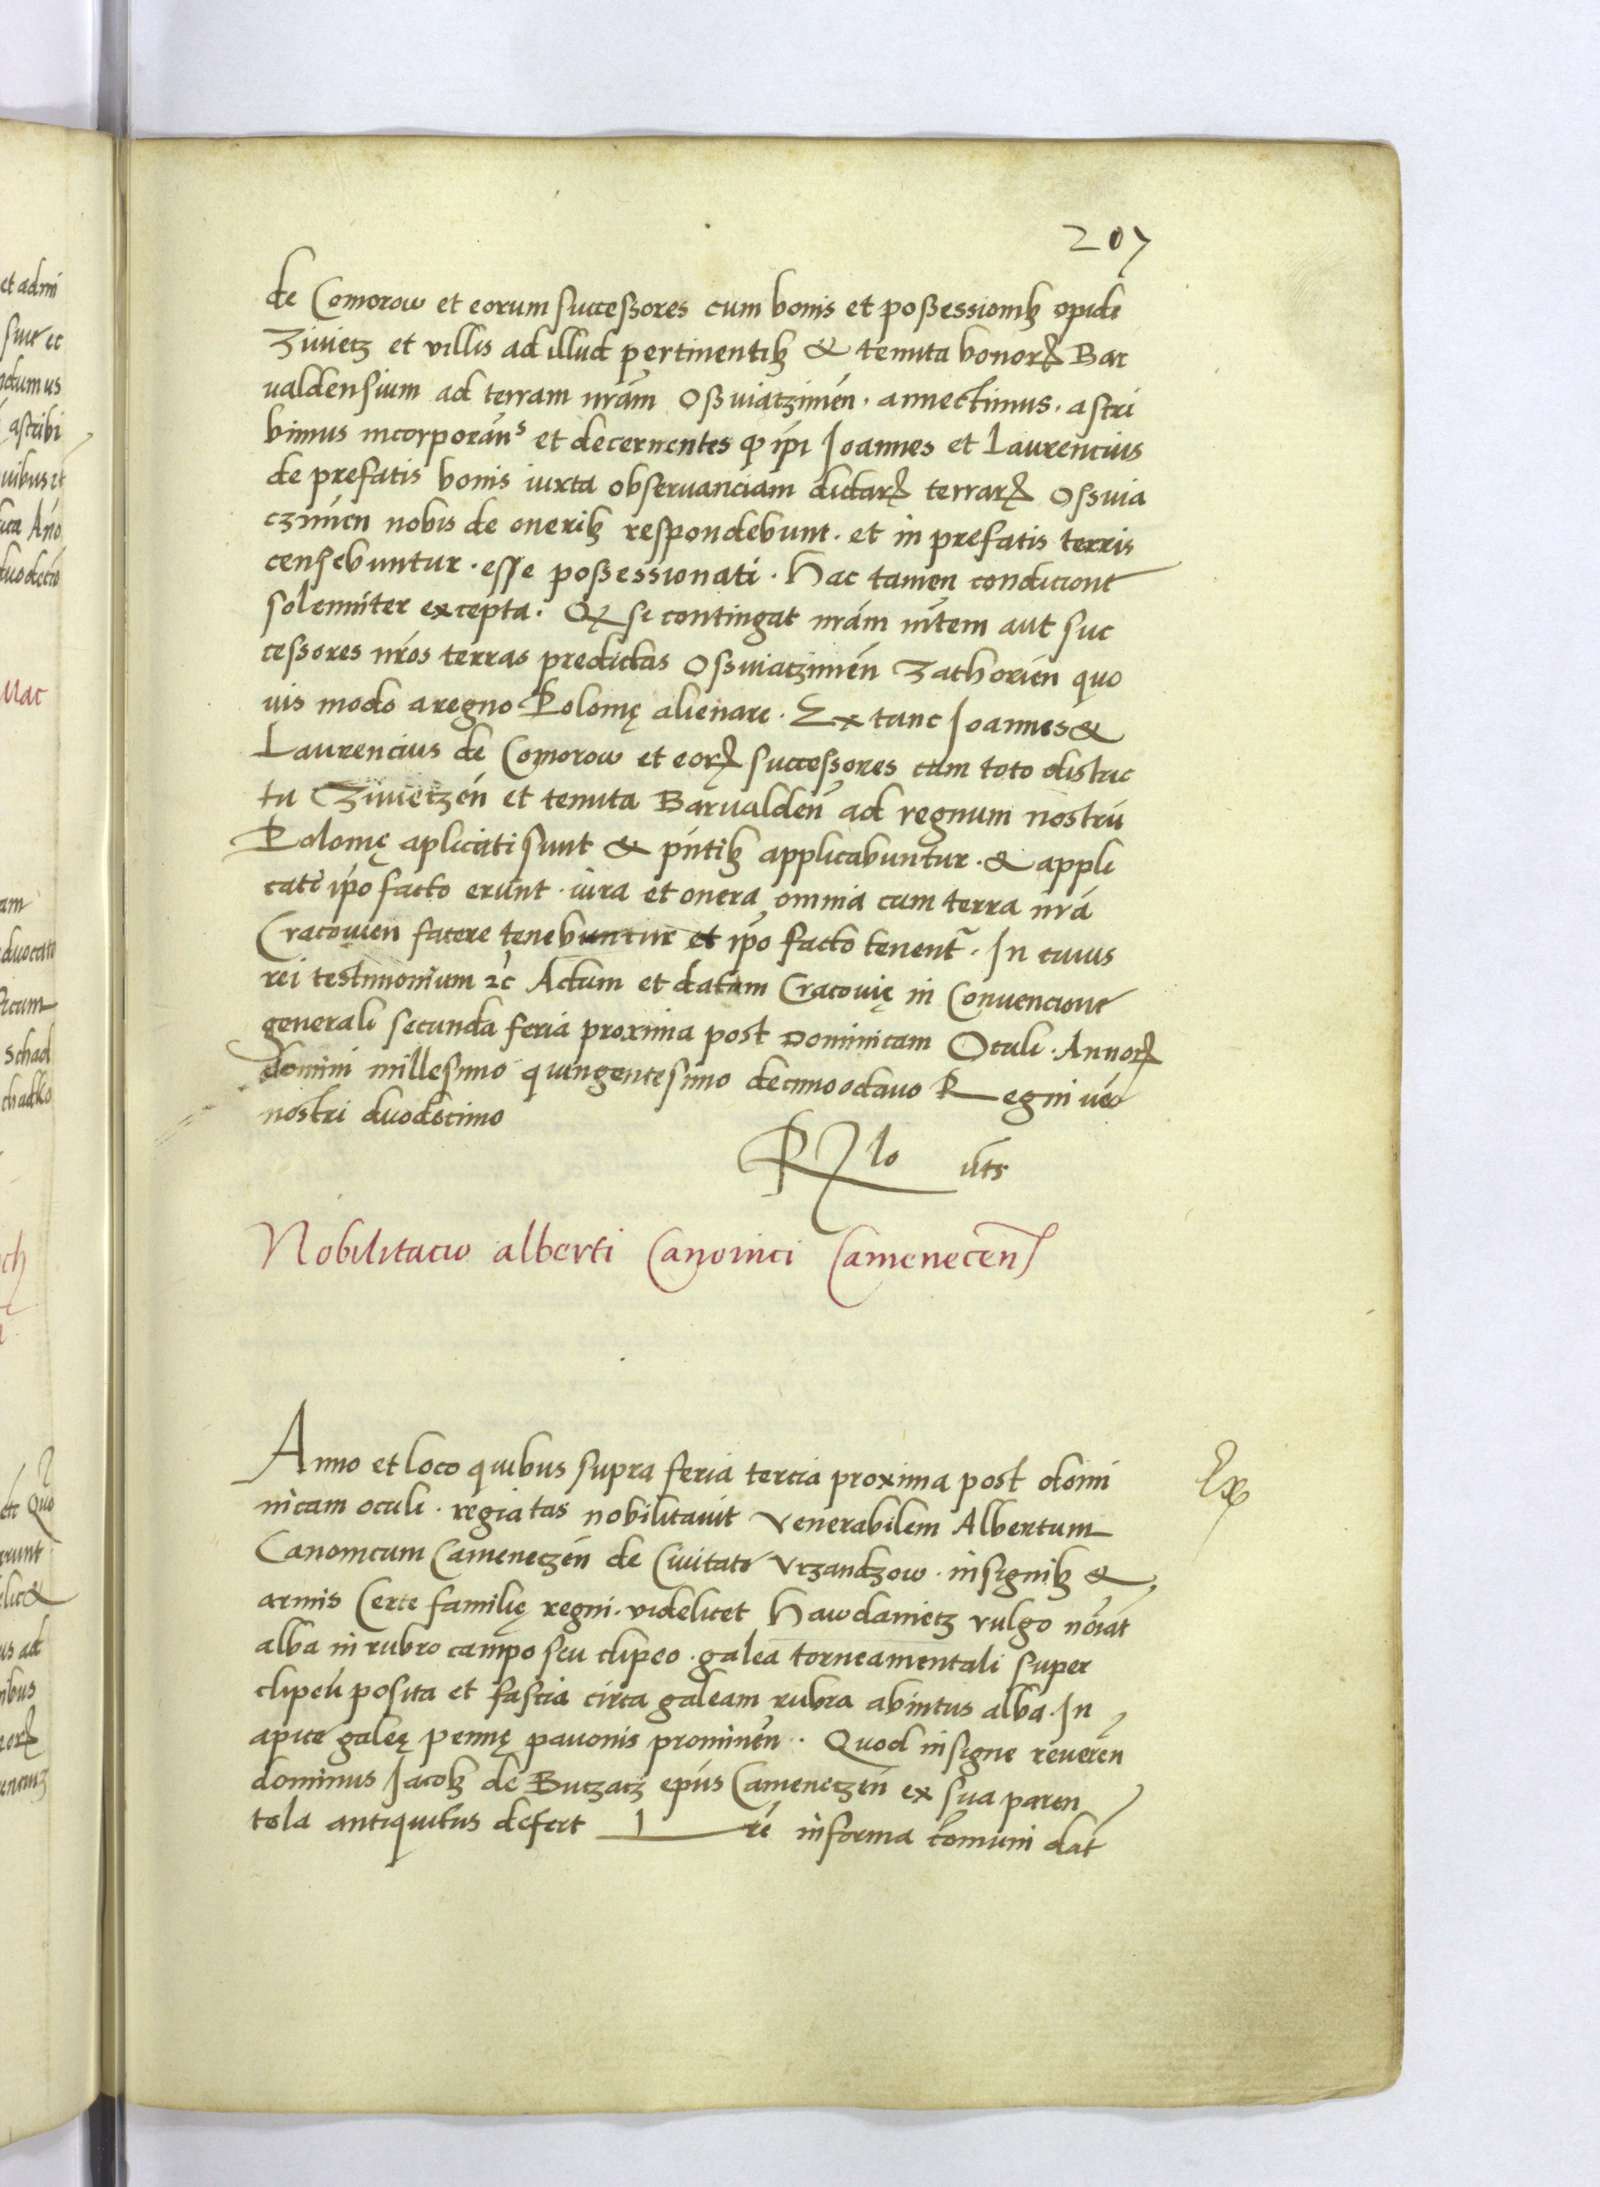 207
de Comorow et eorum successores cum bonis et possessionibꝫ opidi
Ziwietz et villis ad illud pertinentibꝫ & tenuta bonorꝝ Bar
valdensium ad terram nrām Osswiatzimeñ. annectimus. ascri
bimus incorporanˢ et decernentes ꝙ ip̄i Joannes et Laurencius
de prefatis bonis iuxta observanciam dictarꝝ terrarꝝ Osswia
czimen nobis de oneribꝫ respondebunt. et in prefatis terris
censebuntur. esse possessionati. Hac tamen condicione
solenniter excepta. Qꝫ si contingat nrām mtem aut suc
cessores nros terras predictas Osswiatzimeñ Zathorień quo
vis modo a regno Polonię alienare. Ex tunc Joannes &
Laurencius de Comorow et eorꝝ successores cum toto distric
tu Ziwietzeń et tenuta Barvaldeñ ad regnum nostrū
Polonię aplicati sunt & pntibꝫ applicabuntur. & appli
cati ipo facto erunt. iura et onera omnia cum terra nrā
Cracowien facere tenebuntur et ipo facto tenent. In cuius
rei testimonium ⁊c̄ Actum et datum Cracovię in Convencione
generali secunda feria proxima post Dominicam Oculi. Annorꝝ
domini millesimo quingentesimo decimooctavo Regni vēo
nostri duodecimo
Rlo uts
Nobilitacio alberti Canonici Camenecen
Anno et loco quibus supra feria tercia proxima post domi
nicam oculi. regia tas nobilitavit venerabilem Albertum
Canonicum Camenetzeń de Civitate Vrzandzow. insignibꝫ &
armis Certe familię regni. videlicet Hawdanietz vulgo noīat
alba in rubro campo seu clipeo. galea torneamentali super
clipeū posita et fascia circa galeam rubra abintus alba. In
apice galeę pennę pavonis prominen̄. Quod insigne reveren
dominus Jacobꝫ de Butzatz epūs Camenetzeń ex sua paren
tela antiquitus defert Lre in forma comuni dat
Ex